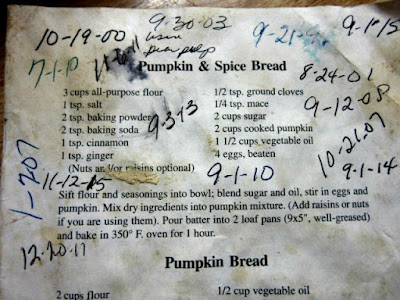 10-19-00
9-30-03
using
pear pulp
9-1-15
7-1-10
Pumpkin & Spice Bread
8-24-01
3 cups all-purpose flour
1/2 tsp. ground cloves
1 tsp. salt
1/4 tsp. mace
9-12-08
2 tsp. baking powder
2 cups sugar
9-3-13
2 tsp. baking soda
2 cups cooked pumpkin
1 tsp. cinnamon
1 1/2 cups vegetable oil
1 tsp. ginger
4 eggs, beaten
10-21-07
(Nuts and/or raisins optional)
9-1-10
9-1-14
11-12-05
1-7-07
Sift flour and seasonings into bowl; blend sugar and oil, stir in eggs and
pumpkin. Mix dry ingredients into pumpkin mixture. (Add raisins or nuts
if you are using them). Pour batter into 2 loaf pans (9x5", well-greased)
and bake in 350° F. oven for 1 hour.
12-20-11
Pumpkin Bread
2 cups flour
1/2 cup vegetable oil